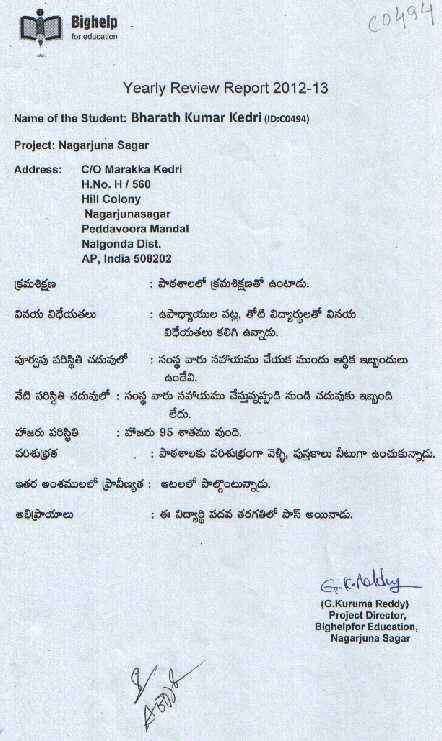 C0494
Bighelp
for education
Yearly Review Report 2012-13
Name of the Student: Bharath Kumar Kedri (ID:C0494)
Project: Nagarjuna Sagar
Address: C/O Marakka Kedri
H.No. H / 560
Hill Colony
Nagarjunasagar
Peddavoora Mandal
Nalgonda Dist.
AP, India 508202
క్రమశిక్షణ : పాఠశాలలో క్రమశిక్షణతో ఉంటాడు.
వినయ విధేయతలు : ఉపాధ్యాయుల పట్ల, తోటి విద్యార్థులతో వినయ
విధేయతలు కలిగి ఉన్నాడు.
పూర్వపు పరిస్థితి చదువులో : సంస్థ వారు సహాయము చేయక ముందు ఆర్థిక ఇబ్బందులు
ఉండేవి.
నేటి పరిస్థితి చదువులో : సంస్థ వారు సహాయము చేస్తున్నప్పుడి నుండి చదువుకు ఇబ్బంది
లేదు.
హాజరు పరిస్థితి : హాజరు 95 శాతము వుంది.
పరిశుభ్రత : పాఠశాలకు పరిశుభ్రంగా వెళ్ళి, పుస్తకాలు నీటుగా ఉంచుకున్నాడు.
ఇతర అంశములలో ప్రావీణ్యత : ఆటలలో పాల్గొంటున్నాడు.
అభిప్రాయాలు : ఈ విద్యార్థి పదవ తరగతిలో పాస్ అయినాడు.
G.K.Reddy
(G.Kuruma Reddy)
Project Director,
Bighelpfor Education,
Nagarjuna Sagar